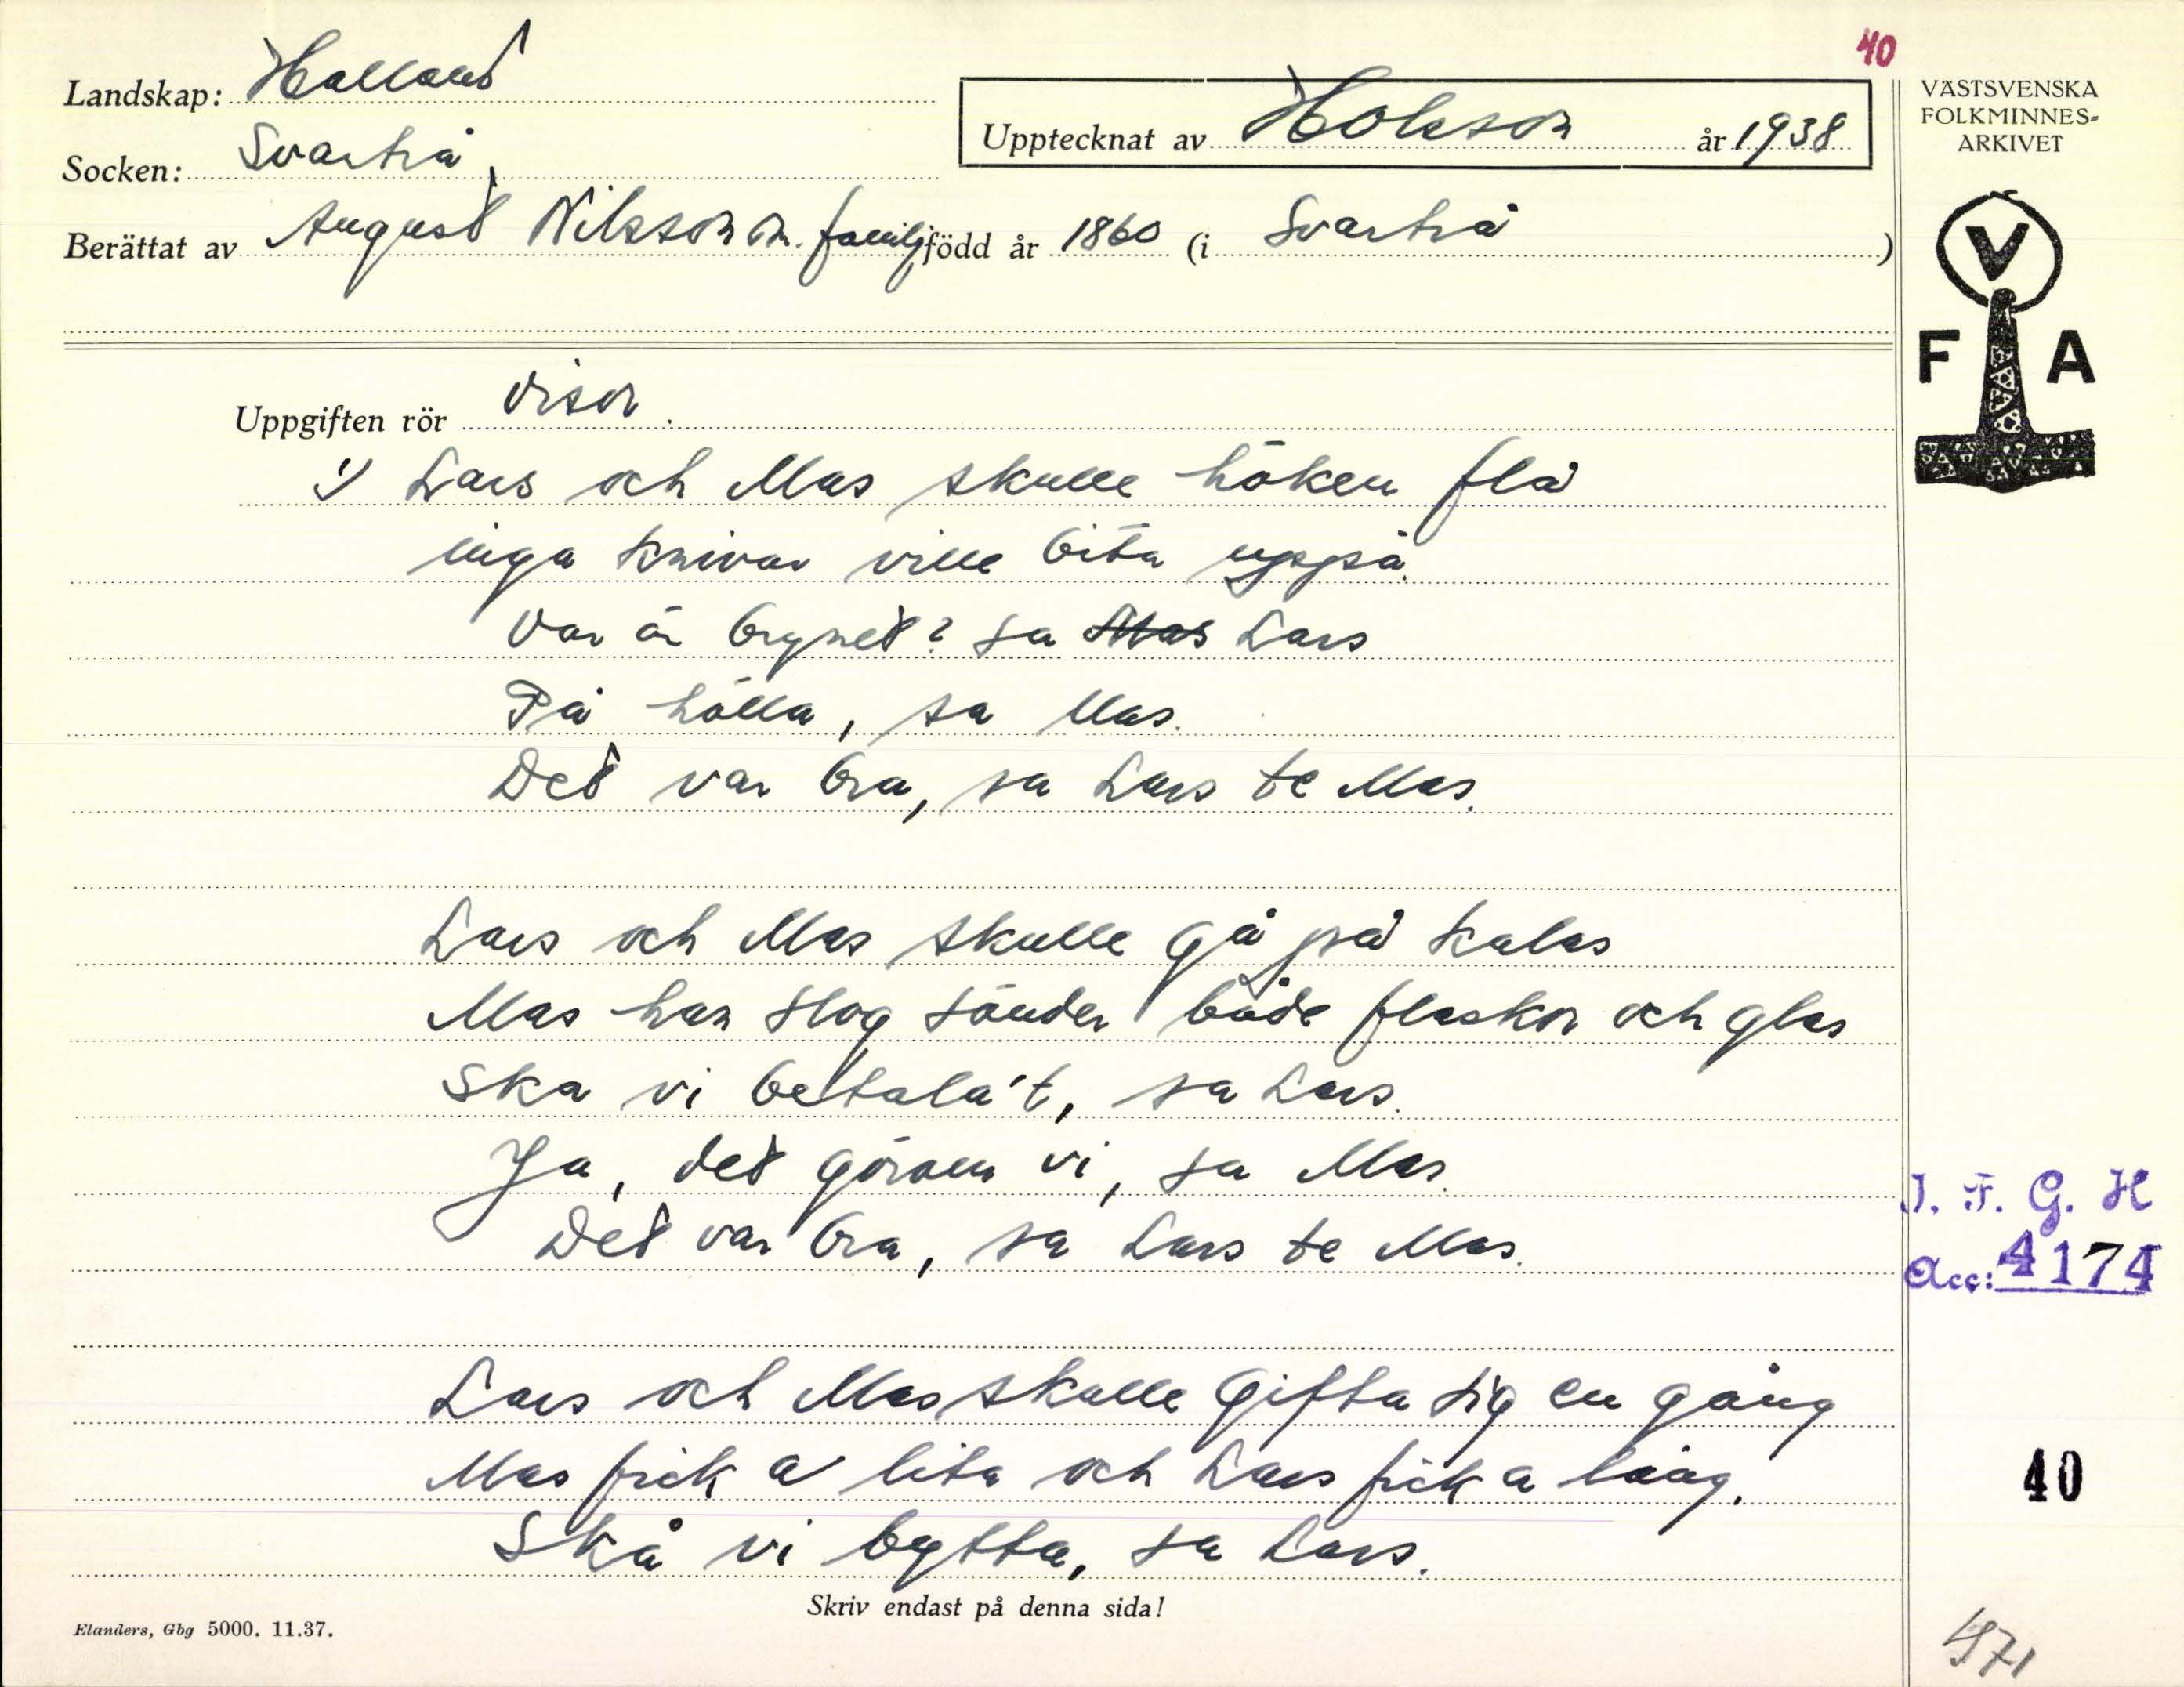 40
Landskap: Halland
VÄSTSVENSKA
FOLKMINNES-
ARKIVET
Upptecknat av Holsson år 1938
Socken: Svartrå
Berättat av August Nilsson m. familj född år 1860 (i Svartrå )
V
F A
Uppgiften rör visor.
1) Lars och Mas skulle höken flå
inga knivar ville bita uppå.
Var är brynet? sa Mas Lars
På hölla, sa Mas.
Det var bra, sa Lars te Mas.
Lars och Mas skulle gå på kalas
Mas han slog sönder både flaskor och glas
Ska vi betala't, sa Lars.
Ja, det göraen vi, sa Mas.
Det var bra, sa Lars te Mas.
J. F. G. H
Acc: 4174
Lars och Mas skulle gifta sig en gång
Mas fick a lita och Lars fick a lång.
40
Skå vi bytta, sa Lars.
Skriv endast på denna sida!
Elanders, Gbg 5000. 11.37.